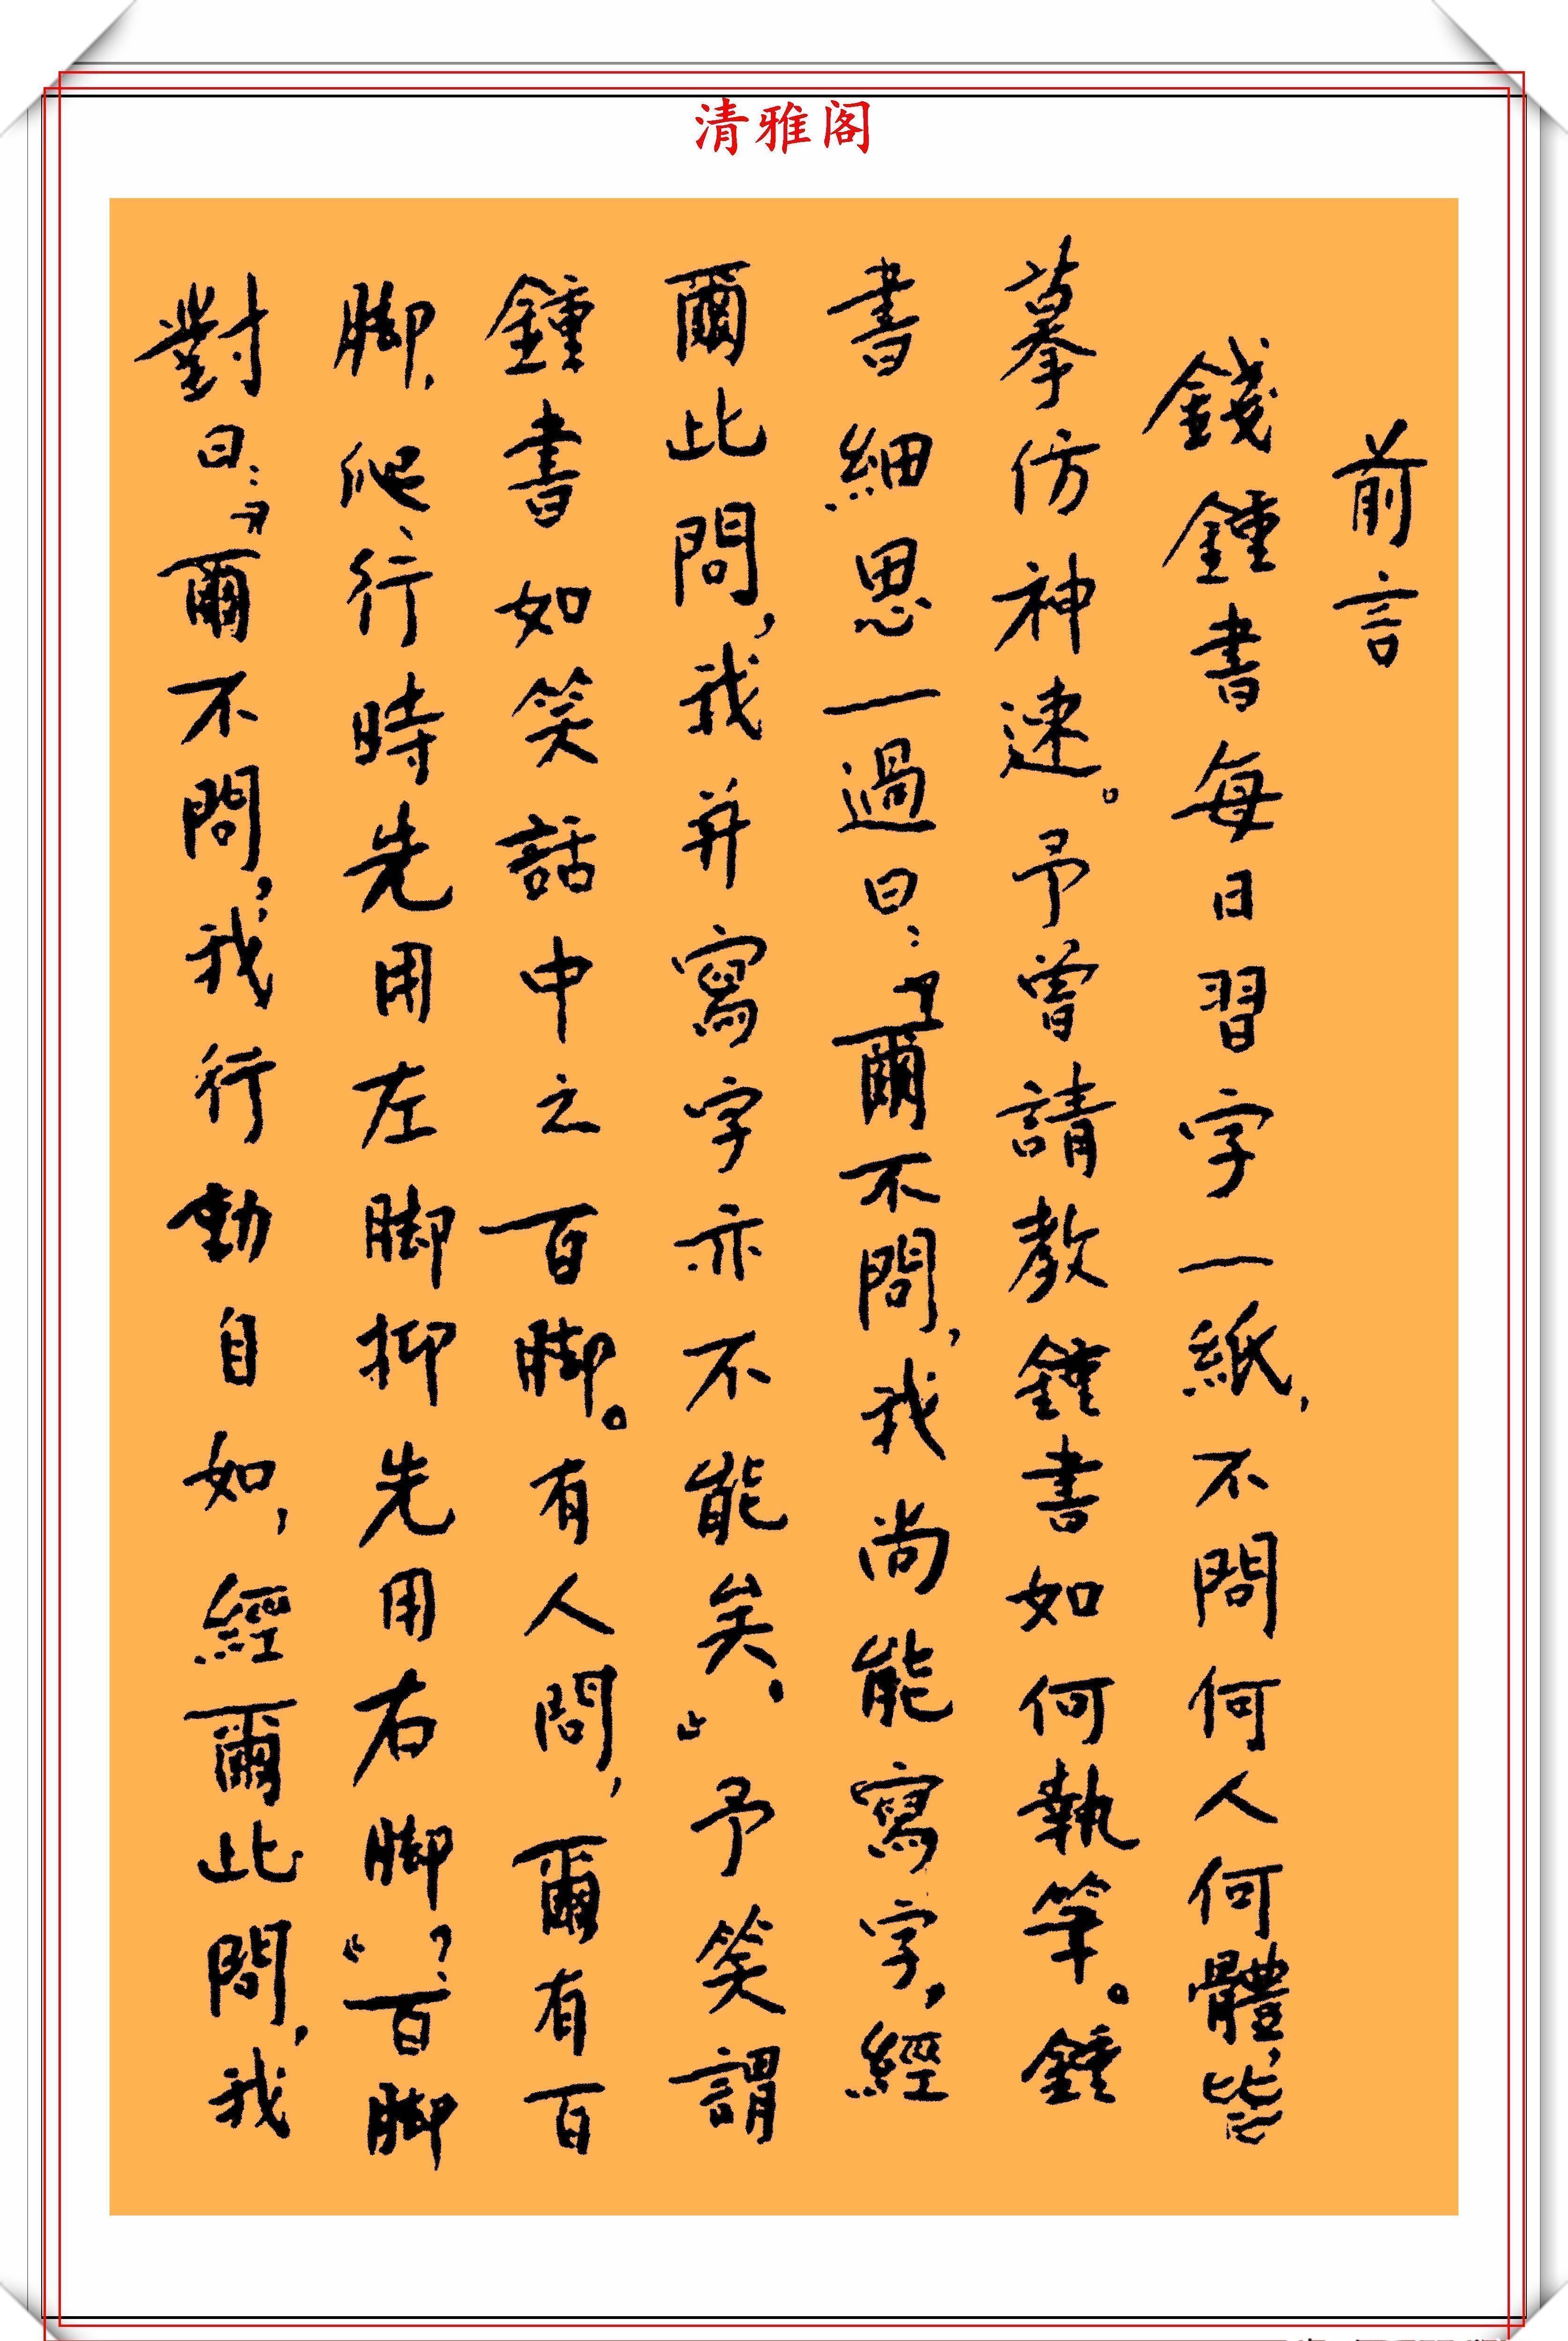 清雅阁
前言
錢鍾書每日習字一紙，不問何人何體，皆
摹仿神速。予曾請教鍾書如何執筆。鍾
書細思一過曰：「爾不問，我尚能寫字，經
爾此問，我并寫字亦不能矣。」予笑謂
鍾書如笑話中之百脚。有人問，爾有百
脚，爬行時先用左脚抑先用右脚？」百脚
對曰：「爾不問，我行動自如，經爾此問，我